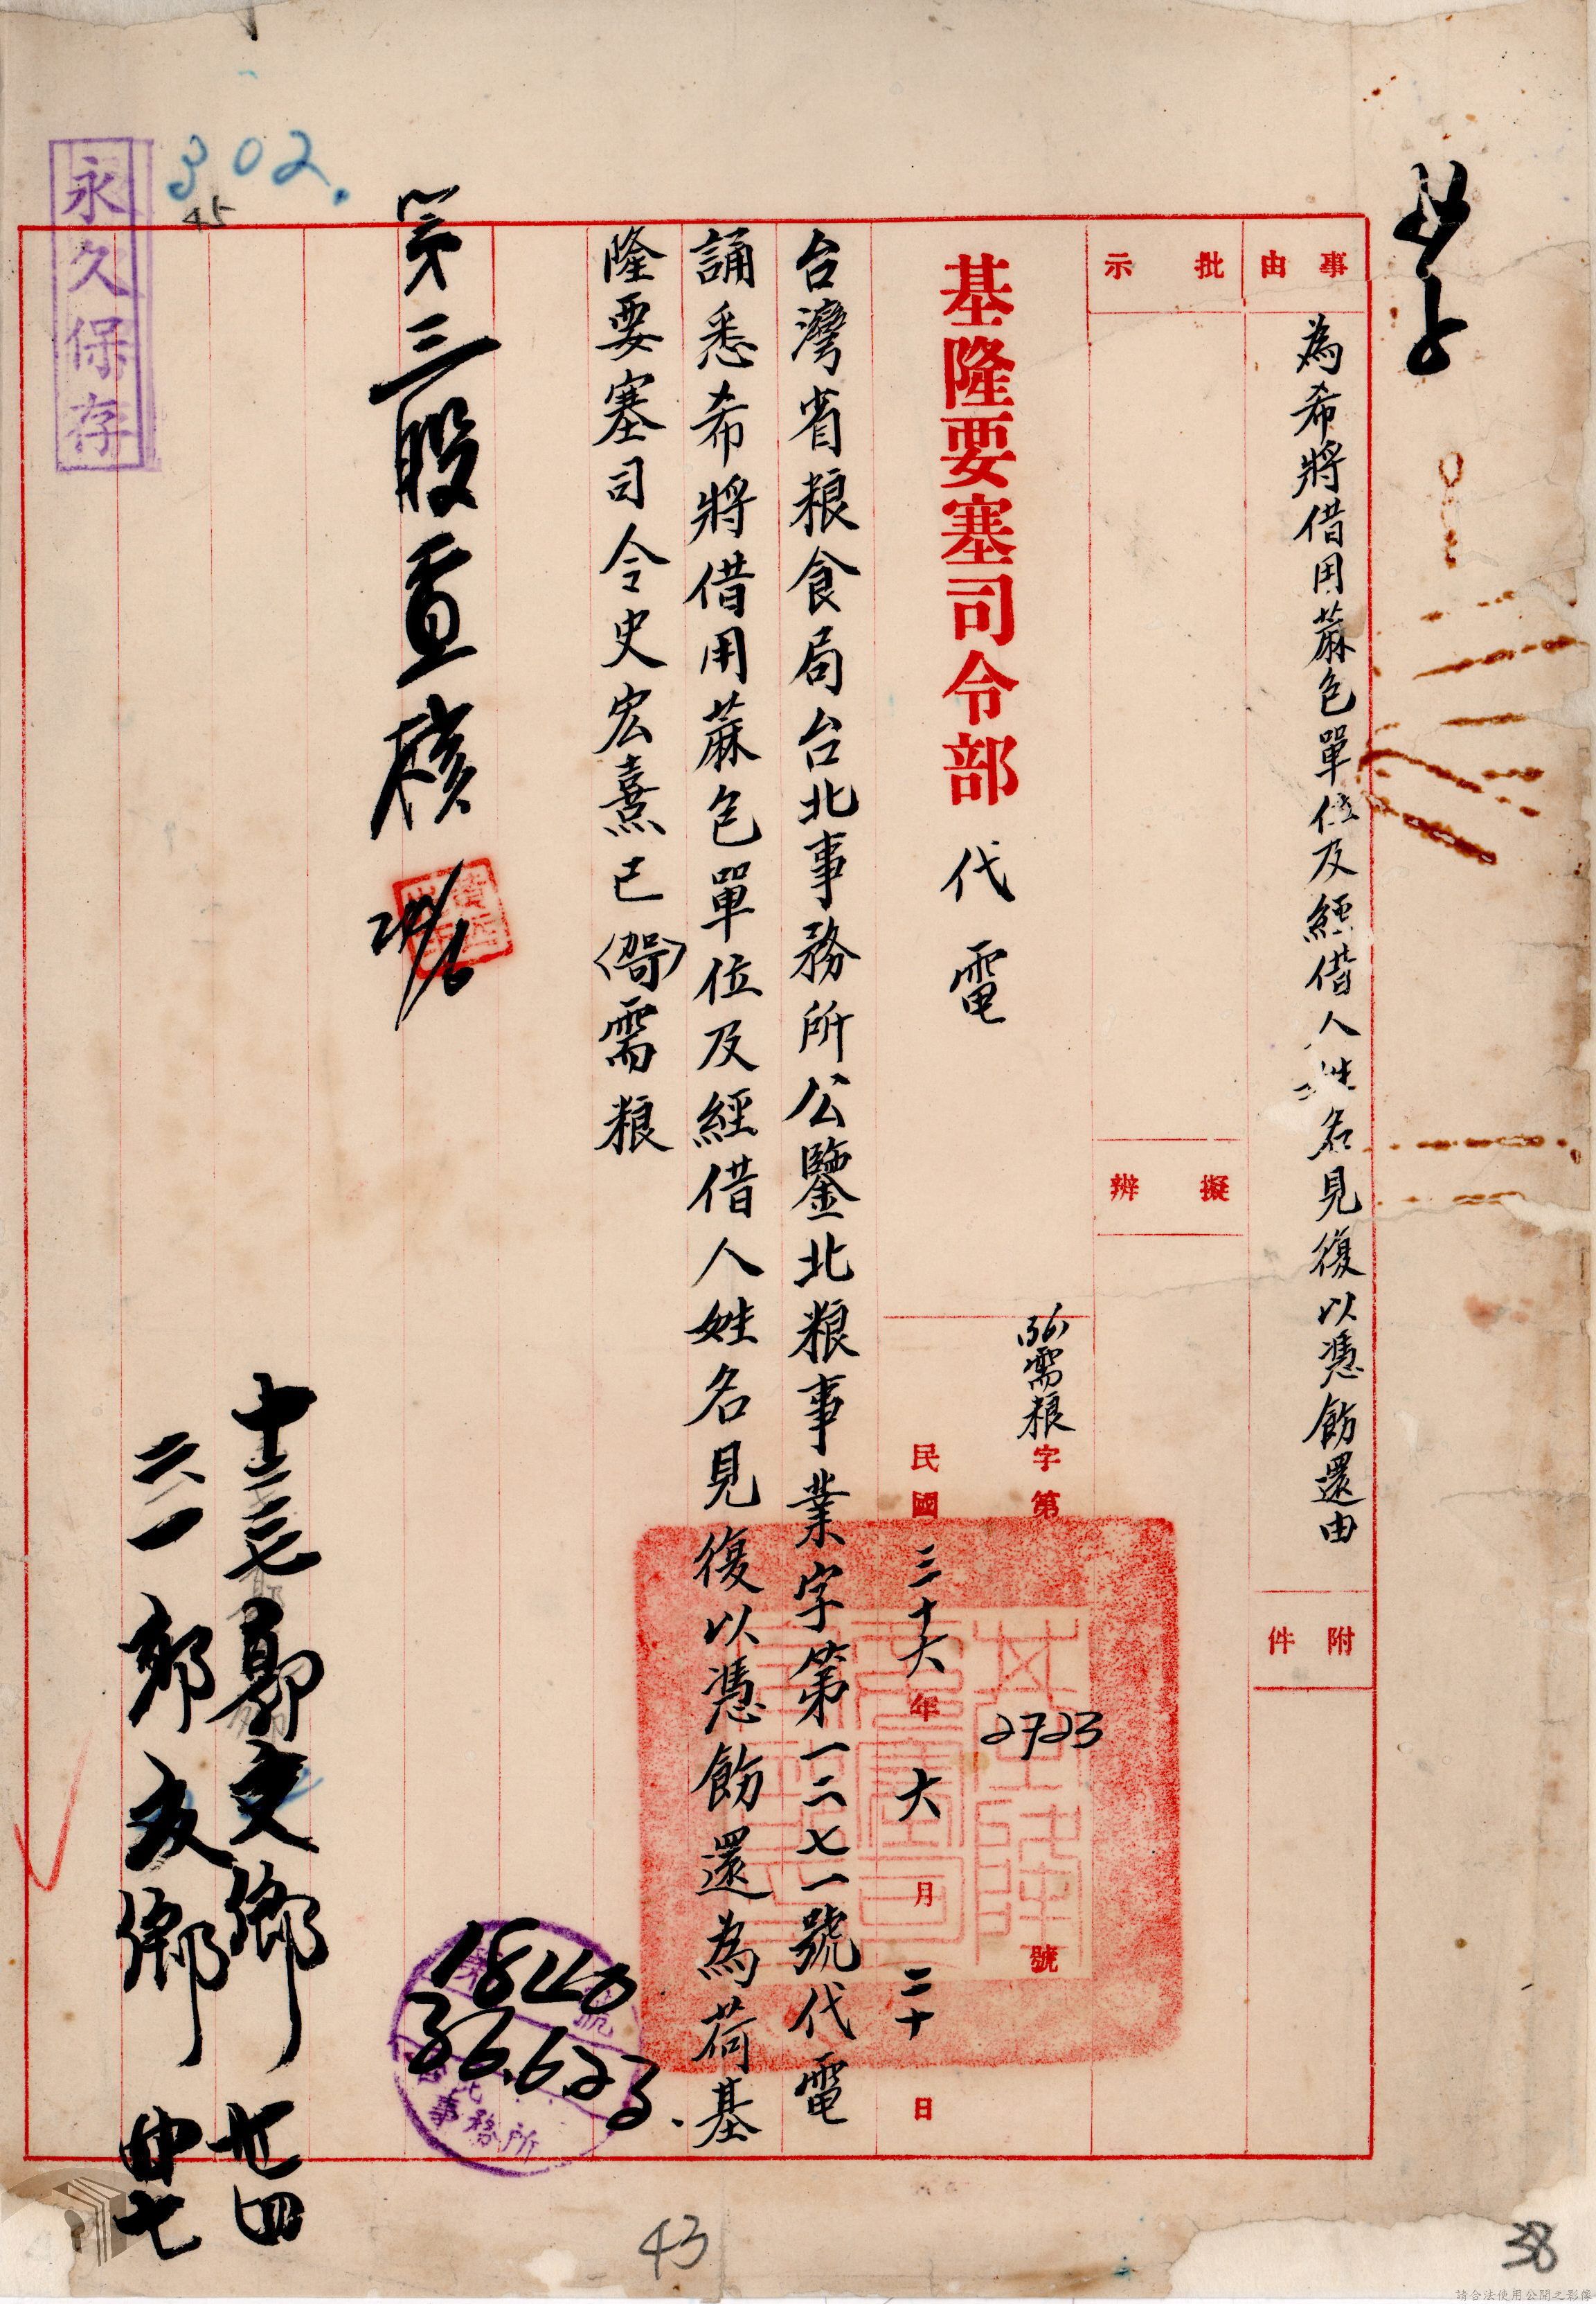 事由
為希將借用蔴包單位及經借人姓名見復以憑飭還由
附件
批示
擬辦
基隆要塞司令部代電
需粮字第2723號
民國三十六年六月二十日
台灣省粮食局台北事務所公鑒北粮事業字第一二七一號代電
誦悉希將借用蔴包單位及經借人姓名見復以憑飭還為荷基
隆要塞司令史宏熹已需粮
第三股查核
24/6
18440
36.6.23.
事務所
十二七郭文鄉廿四
六一郭文鄉廿七
永久保存
302.
45
43
38
請合法使用公開之影像